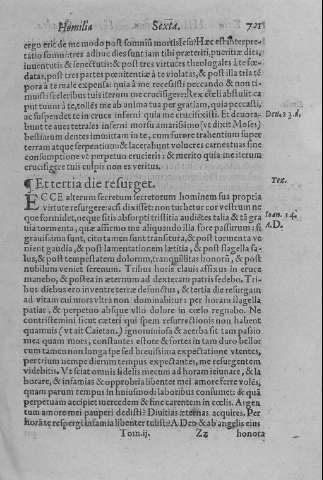 Homilia Sexta. 721
ergo erit de me modo post somniũ mortis tuę! Hæc est interpre-
tatio somnii: tres adhuc dies sunt iam tibi præteriti, pueritiæ dies,
iuuentutis & senectutis: & post tres virtutes theologales à te fœ-
datas, post tres partes pœnitentiæ à te violatas, & post illa tria tẽ
pora à te male expensa: quia à me recessisti peccando & non ti-
muisti scelestibus tuis iterum me crucifigere; Rex cœli abstulit ca
put tuum à te, tollẽs me ab anima tua per gratiam, quia peccasti,
ac suspendet te in cruce inferni quia me crucifixisti. Et deuora-
bunt te aues tetrales inferni morsu amarissimo (vt dixit Moses) Deu. 32. d.
bestiarum dentes immittam in te, cum furore trahentium super
terram atque serpentium & lacerabunt volucres carnes tuas sine
consumptione vt perpetuo crucieris: & merito quia me iterum
crucifigere tuis culpis non es veritus.
¶ Et tertia die resurget. Tex.
ECCE alterum secretum secretorum hominem sua propria
virtute resurgere ac si dixisset: non turbetur cor vestrum ne
que formidet, neque sitis absorpti tristitia audiẽtes talia & tã gra Ioan. 14.
uia tormenta, quæ affirmo me aliquando illa fore passurum: si A.D.
grauissima sunt, cito tamen sunt transitura, & post tormenta ve
nient gaudia, & post lamentationem lætitia, & post flagella sa-
lus, & post tempestatem dolorum, tranquillitas honorũ, & post
nubilum veniet serenum. Tribus horis clauis affixus in cruce
manebo, & postea in æternum ad dexteram patris sedebo. Tri-
bus diebus ero in ventre terræ defunctus, & tertia die resurgam
ad vitam cui mors vltra non dominabitur: per horam flagella
patiar, & perpetuo absque vllo dolore in cœlo regnabo. Ne
contristemini sicut cæteri qui spem resurrectionis non habent
quamuis (vt ait Caietan.) ignominiosa & acerba sit tam passio
mea quam mors, constantes estote & fortes in tam duro bellor
cum tamen non longa spe sed breuissima expectatione vtentes,
per trium nempe dierum tempus expectantes, me resurgentem
videbitis. Vt sciat omnis fidelis mecum ad horam ieiunare, & la
borare, & infamias & opprobria libenter mei amore ferre volẽs,
quam parum tempus in huiusmodi laboribus consumet: & quã
perpetuam accipiet mercedem & fine carentem in cœlis. Argen
tum amore mei pauperi dedisti? Diuitias æternas acquires. Per
horã te respergi infamia libenter tulisti? A Deo & ab angelis eius
Tom. ij. Zz honora